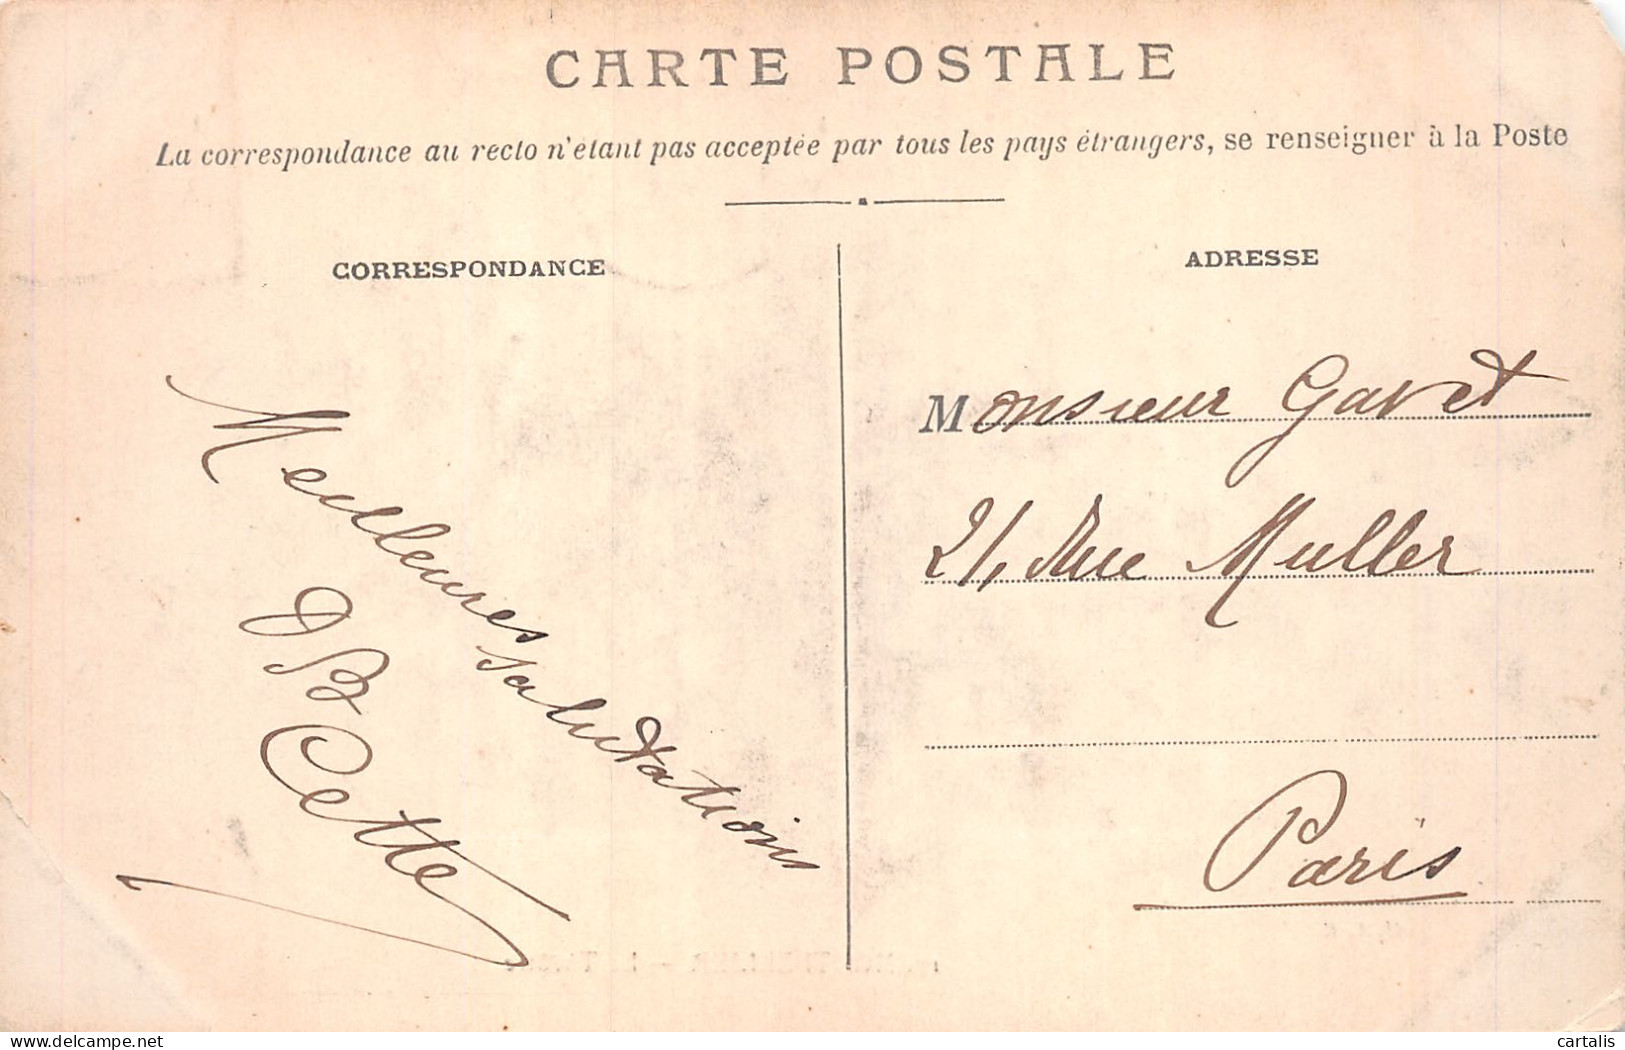 CARTE POSTALE
La correspondance au recto n'étant pas acceptée par tous les pays étrangers, se renseigner à la Poste
CORRESPONDANCE
Meilleures salutations
ADRESSE
Monsieur Gavet
21, Rue Muller
Paris
delcampe.net
cartalis